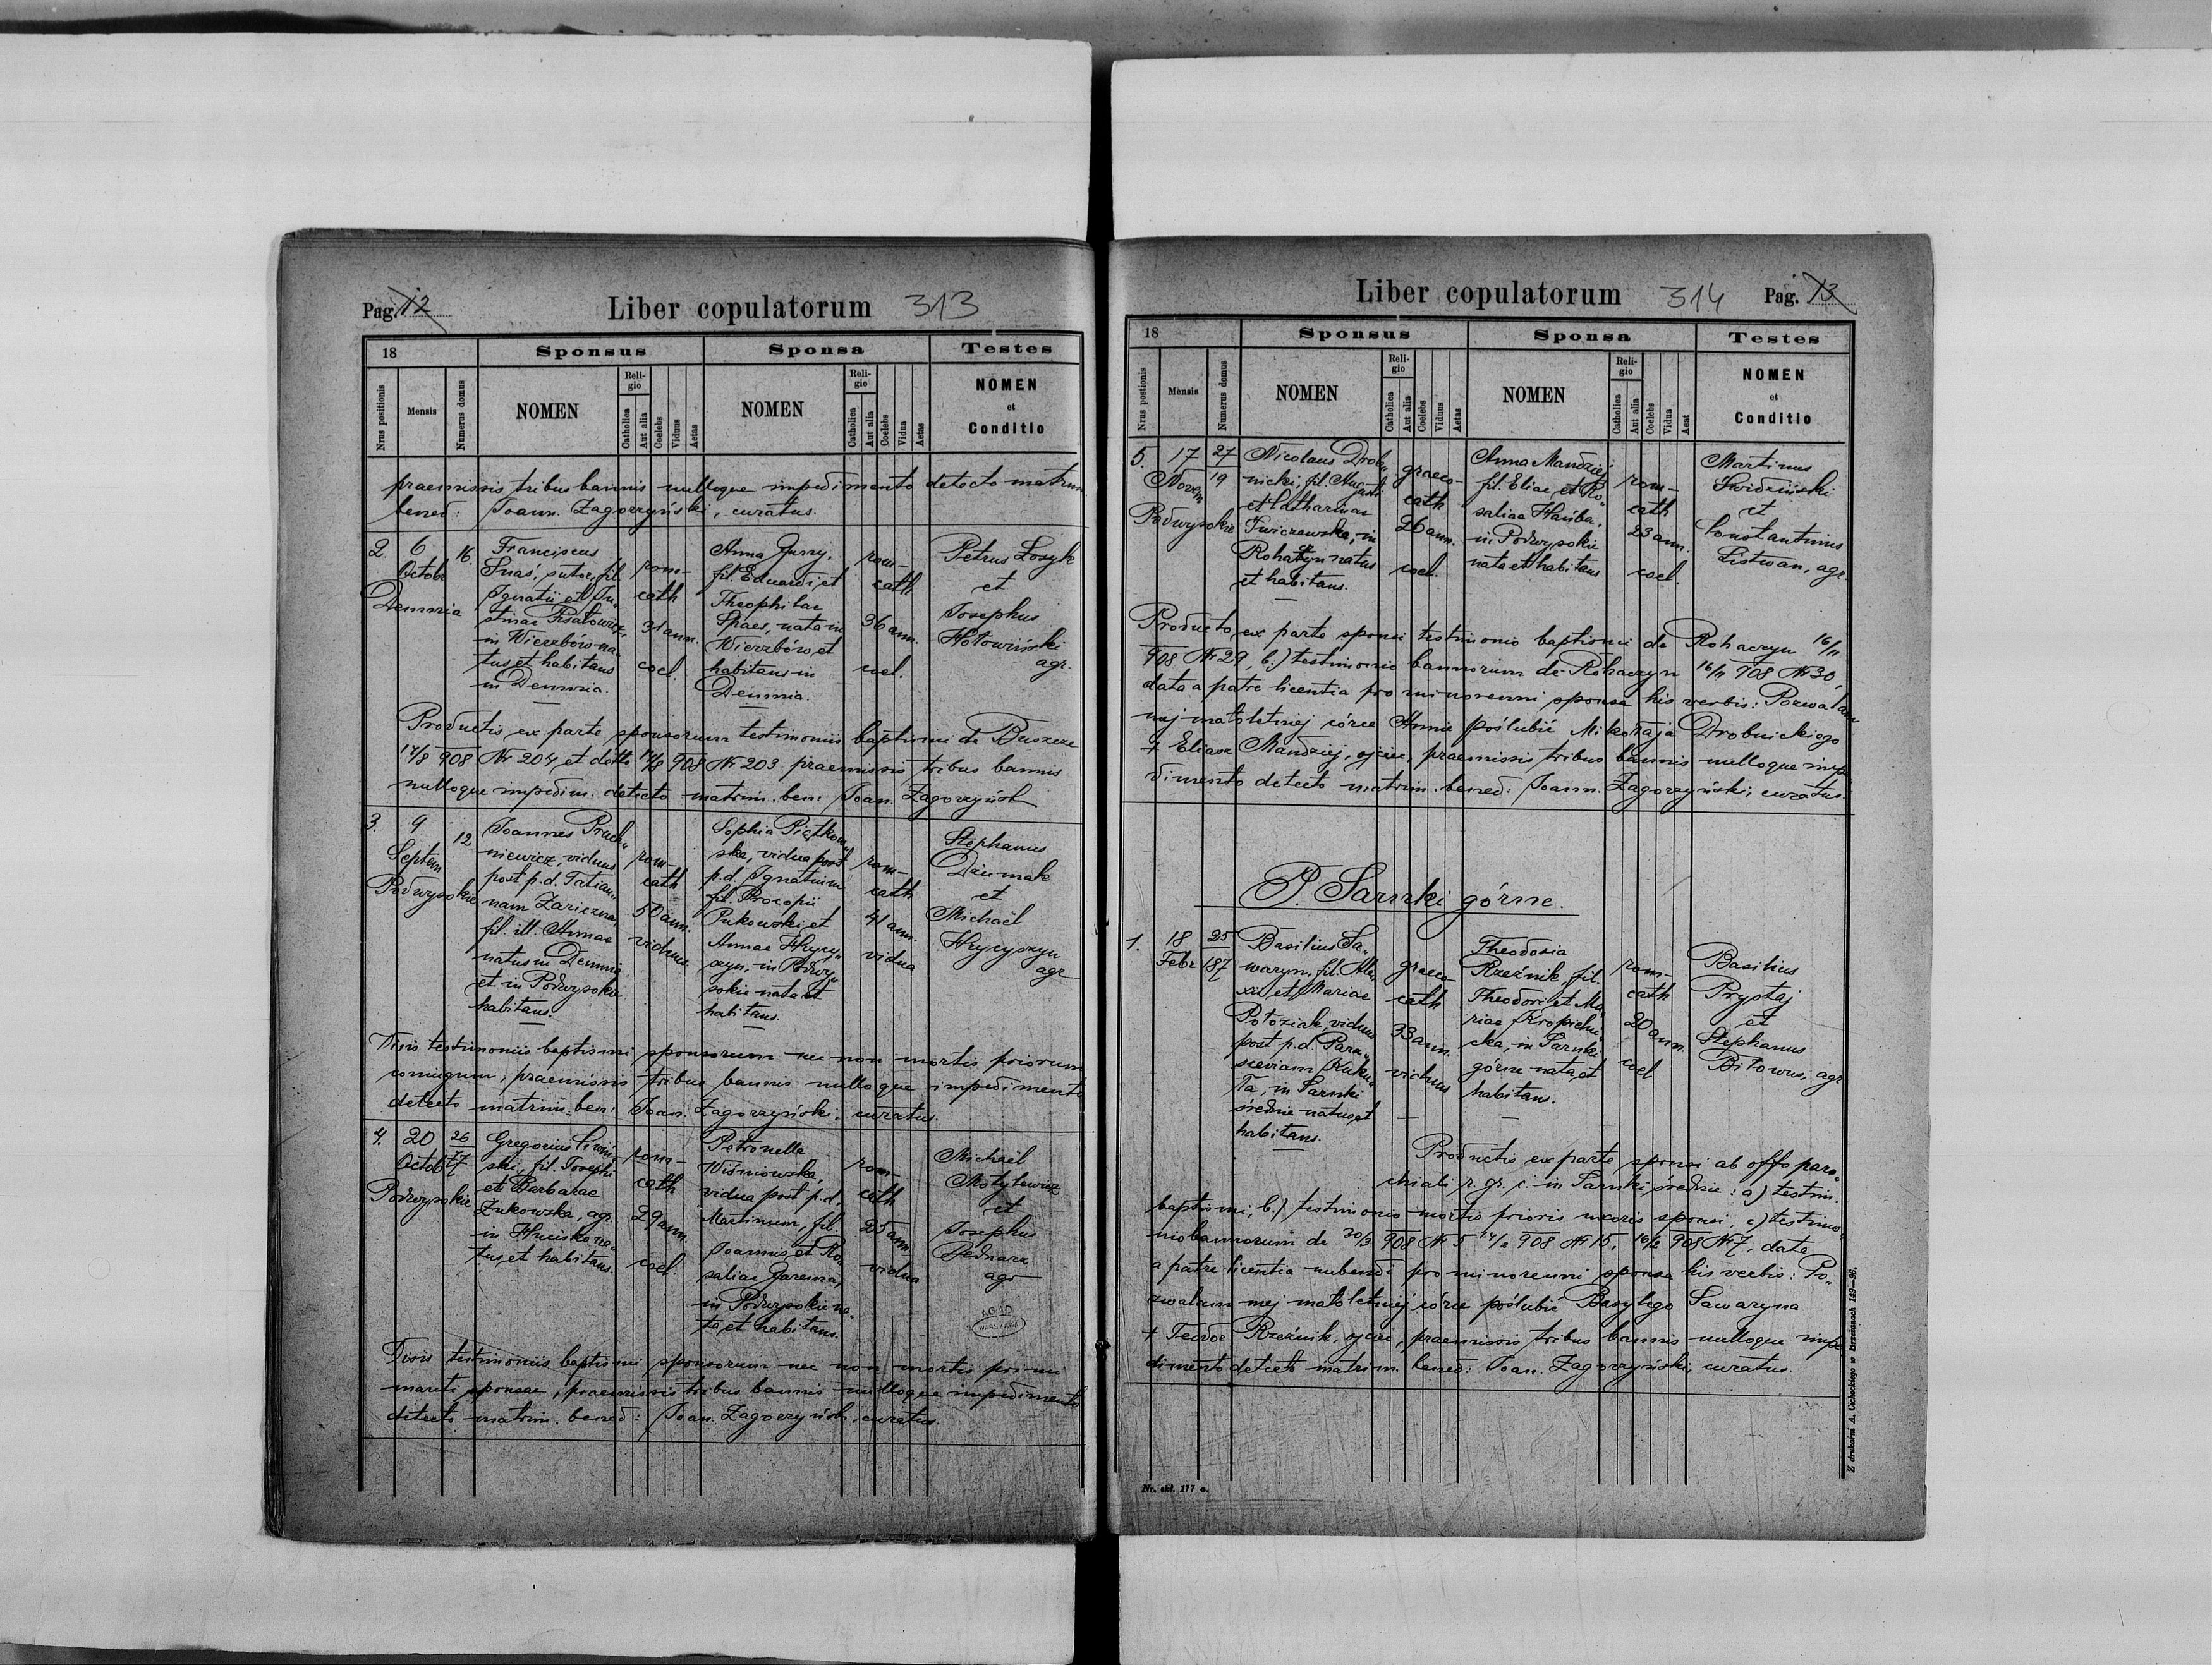 Pag. 12 Liber copulatorum 313
18 Sponsus Sponsa Testes
Nrus positionis Mensis Numerus domus NOMEN Religio Catholica Aut alia Coelebs Viduus Aetas NOMEN Religio Catholica Aut alia Coelebs Vidua Aetas NOMEN et Conditio
praemissis tribus bannis nulloque impedimento detecto matrim.
bened: Joann. Zagorzyński, curatus.
2. 6 Octob Demnia
16.
Franciscus
sutor, fil.
Ignatii et
in Wierzbów na-
tus et habitans
in Demnia.
rom-
cath
31 ann.
coel.
Anna
fil. Eduardi et
Theophilae
Spaes, nata in
Wierzbów, et
habitans in
Demnia.
rom-
cath
36 ann.
coel.
Petrus Łosyk
et
Josephus
Hołowiński
agr.
Productis ex parte sponsorum testimoniis baptismi de Buszcze
17/8 908 Nr 204, et detto 17/8 908 Nr 203 praemissis tribus bannis
nulloque impedim. detecto matrim. ben: Joan. Zagorzyński
3. 9 Septem Podwysokie
12
Joannes Pruch„
niewicz, viduus
post p.d. Tatian„
nam Zariczna,
fil. ill. Annae
natus in Demnia
et in Podwysokie
habitans.
rom-
cath
50 ann.
viduus.
Sophia Piątkow„
ska, vidua post
p.d. Ignatium
fil. Procopii
Pukowski et
Annae Hrycy„
szyn, in Podwy„
sokie nata et
habitans.
rom-
cath
41 ann.
vidua
Stephanus
Dziumak
et
Michaël
Hrycyszyn
agr
Visis testimoniis baptismi sponsorum nec non mortis priorum
coniugum, praemissis tribus bannis nulloque impedimento
detecto matrim. ben: Joan. Zagorzyński. curatus.
4. 20 Octob Podwysokie
26
77
Gregorius
ski, fil. Josephi
et Barbarae
Żukowska, agr.
in Hucisko na„
tus et habitans.
rom-
cath
29 ann.
coel.
Petronella
Wiśniowska,
vidua post p.d.
Martinum, fil.
Joannis et Ro„
saliae Jarema,
in Podwysokie na„
ta et habitans.
rom-
cath
25 ann.
vidua
Michaël
Motylewicz
et
Josephus
Bednarz
agr
AGAD
WARSZAWA
Visis testimoniis baptismi sponsorum nec non mortis primi
mariti sponsae, praemissis tribus bannis nulloque impedimento
detecto matrim. bened: Joan. Zagorzyński, curatus.
Liber copulatorum 314 Pag. 13
18 Sponsus Sponsa Testes
Nrus positionis Mensis Numerus domus NOMEN Religio Catholica Aut alia Coelebs Viduus Aetas NOMEN Religio Catholica Aut alia Coelebs Vidua Aetat NOMEN et Conditio
5. 17 Novem Podwysokie
27
19
Nicolaus Drob„
nicki, fil.
et Catharinae
Iwiczewska, in
Rohaczyn natus
et habitans.
graeco-
cath
26 ann.
coel.
Anna Mandziej
fil. Eliae et Ro„
saliae Hańba,
in Podwysokie
nata et habitans
rom-
cath
23 ann.
coel.
Martinus
Świdziński
et
Constantinus
Listwan, agr.
Producto ex parte sponsi testimonio baptismi de Rohaczyn 16/11
908 Nr 29, b.) testimonio bannorum de Rohaczyn 16/11 908 Nr 30,
data a patre licentia pro minorenni sponsa his verbis: Pozwalam
mej małoletniej córce Annie poślubić Mikołaja Drobnickiego
+ Eliasz Mandziej, ojciec, praemissis tribus bannis nulloque impe„
dimento detecto matrim. bened: Joann. Zagorzyński, curatus.
P. Sarnki górne.
1. 18 Febr
25
187
Basilius Sa„
waryn, fil. Ale„
xii et Mariae
Połoziak, viduus
post p.d. Para„
sceviam Kuku„
ła, in Sarnki
średnie natus, et
habitans.
graeco
cath
33 ann.
viduus
Theodosia
Rzeźnik, fil.
Theodori et Ma„
riae Kropielni„
cka, in Sarnki
górne nata, et
habitans.
rom-
cath
20 ann.
coel
Basilius
Prystaj
et
Stephanus
Biłowus, agr
Productis ex parte sponsi ab offo paro„
chiali r. gr. c. in Sarnki średnie: a) testim.
baptismi, b.) testimonio mortis prioris uxoris sponsi, c) testimo„
nio bannorum de 20/3 908 Nr 5 14/2 908 Nr 15, 16/2 908 Nr 7, data
a patre licentia nubendi pro minorenni sponsa his verbis: Po„
zwalam mej małoletniej córce poślubić Bazylego Sawaryna
+ Teodor Rzeźnik, ojciec, praemissis tribus bannis nulloque impe
dimento detecto matrim. bened: Joan. Zagorzyński, curatus.
Nr. skł. 177 a.
Z drukarni A. Cichockiego w Brzeżanach 149—96.